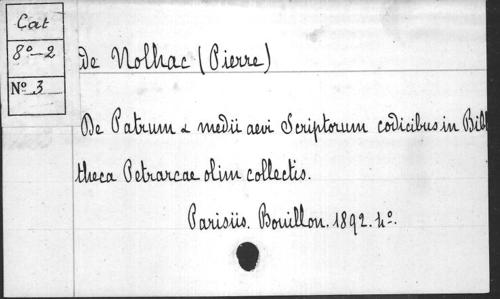 Cat
8º-2
Nº 3
de Nolhac (Pierre)
De Patrum & medii aevi Scriptorum codicibus in Bibl
theca Petrarcae olim collectis.
Parisiis. Bouillon. 1892. 4º.